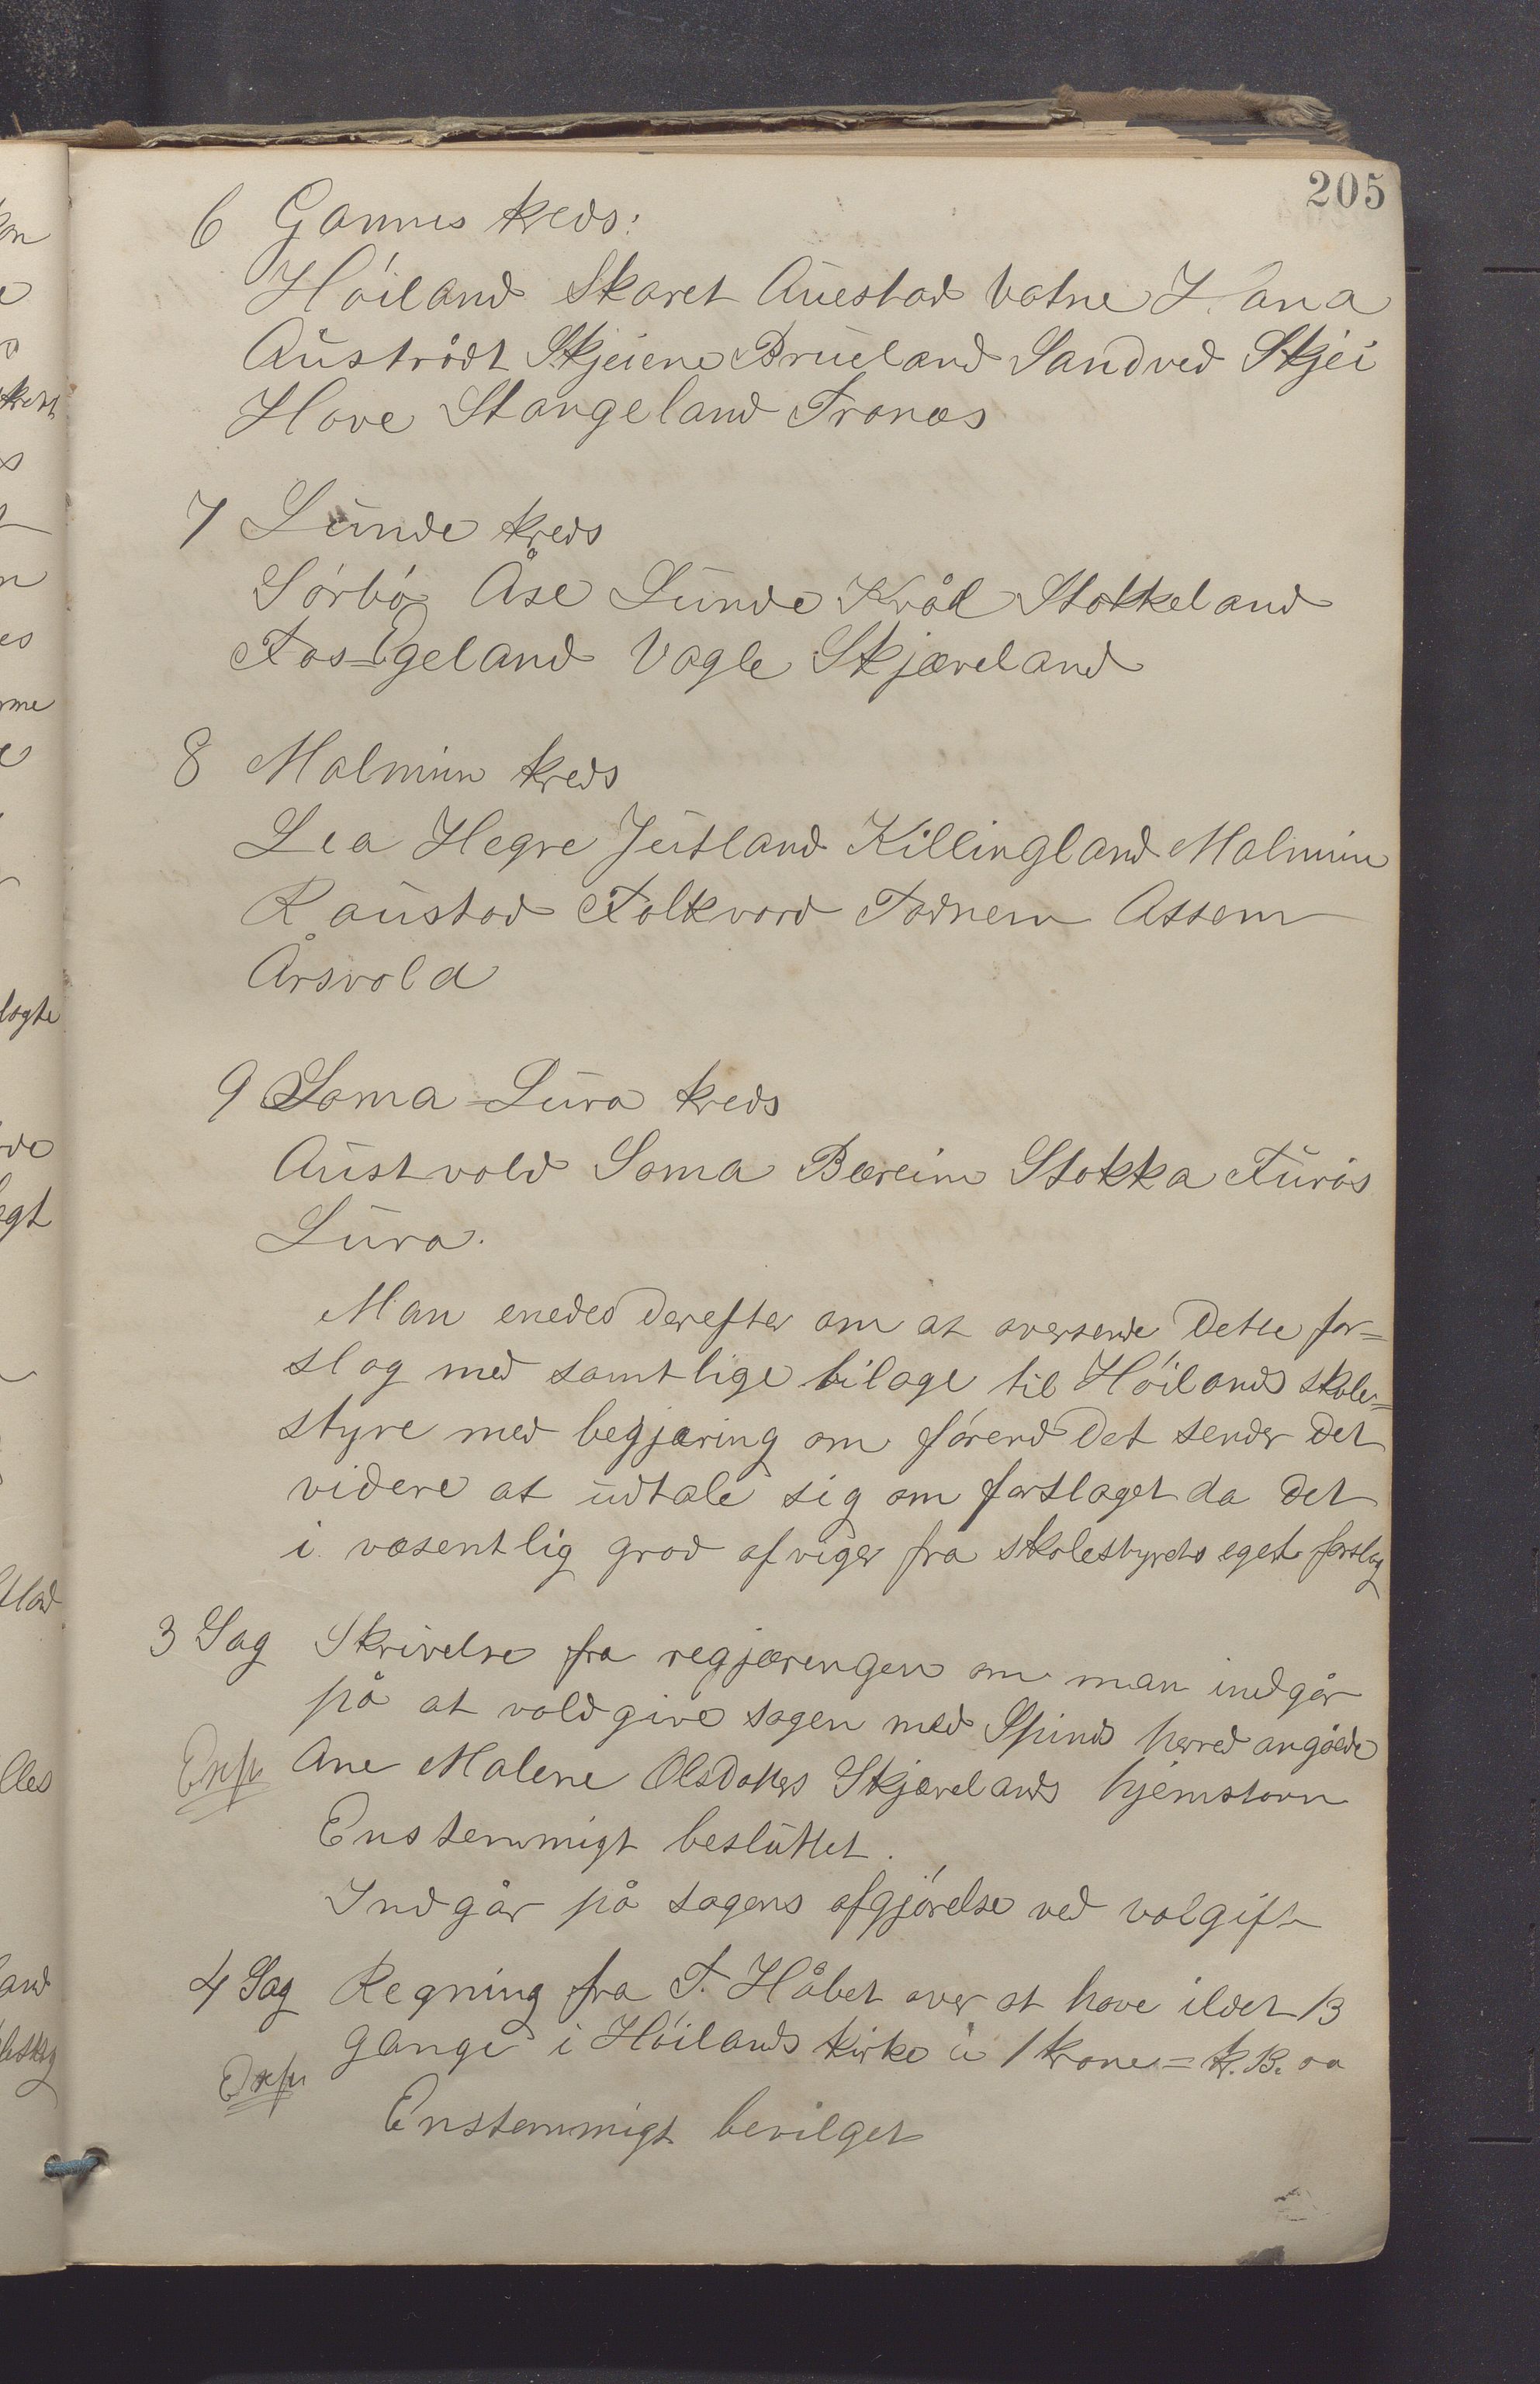 205
6 Gannes kreds:
Höiland Skaret Auestad Vatne Hana
Austrått Skjeiene Brueland Sandved Skjei
Hove Stangeland Tronæs
7 Lunde kreds
Sörbö Åse Lunde Kvål Stokkeland
Fos=Egeland Vagle Skjæveland
8 Malmim kreds
Lea Hegre Jutland Killingland Malmim
Raustad Folkvord Todnem Assem
Årsvold
9 Soma=Lura kreds
Austvold Soma Bæreim Stokka Furås
Lura.
Man enedes derefter om at oversende dette for=
slag med samtlige bilage til Höilands skole=
styre med begjæring om förend det sender det
videre at udtale sig om forslaget da det
i væsentlig grad afviger fra skolestyrets eget forslag
3 Sag Skrivelse fra regjæringen om man indgår
på at voldgive sagen med Spinds herred angåede
Exp Ane Malene Olsdatters Skjævelands hjemstavn
Enstemmigt besluttet.
Indgår på sagens afgjörelse ved volgift
4 Sag Regning fra T. Håbet over at have ildet 13
gange i Höilands kirke à 1 krone = kr. 13. oo
Exp
Enstemmigt bevilget